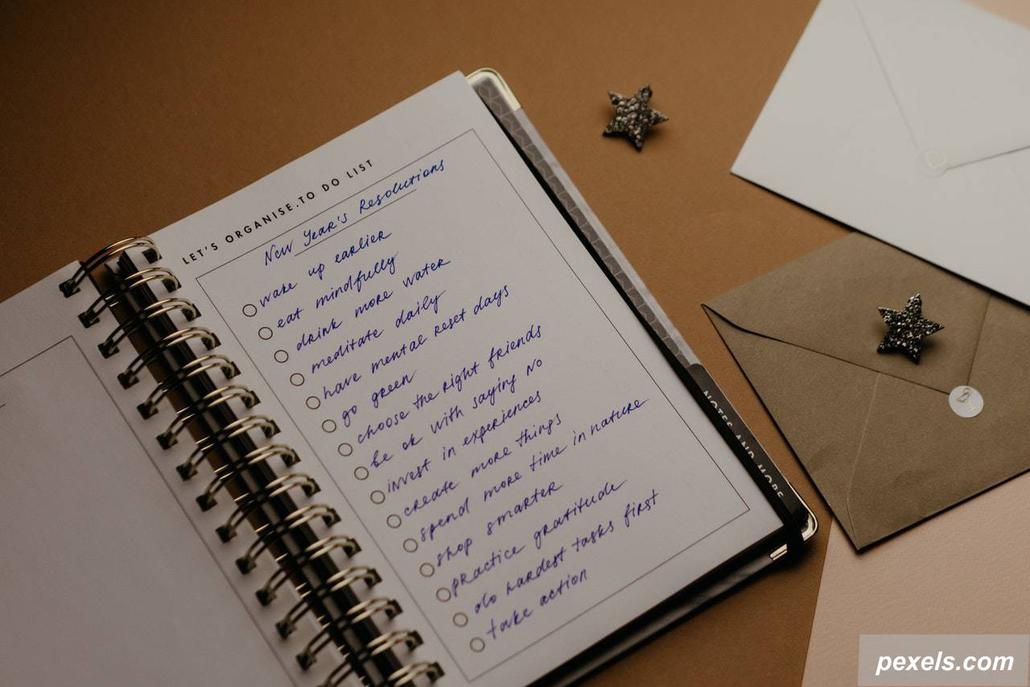 LET'S ORGANISE.TO DO LIST
New Year's Resolutions
wake up earlier
eat mindfully
drink more water
meditate daily
have mental reset days
go green
choose the right friends
be ok with saying NO
invest in experiences
create more things
spend more time in nature
shop smarter
practice gratitude
do hardest tasks first
take action
NOTES AND MORE
pexels.com